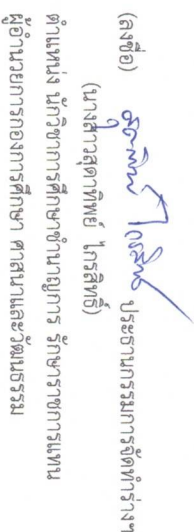 (ลงชื่อ) สุดาทิพย์ ไกรสิทธิ์ ประธานกรรมการจัดทำร่างฯ
(นางสาวสุดาทิพย์ ไกรสิทธิ์)
ตำแหน่ง นักวิชาการศึกษาชำนาญการ รักษาราชการแทน
ผู้อำนวยการกองการศึกษา ศาสนาและวัฒนธรรม